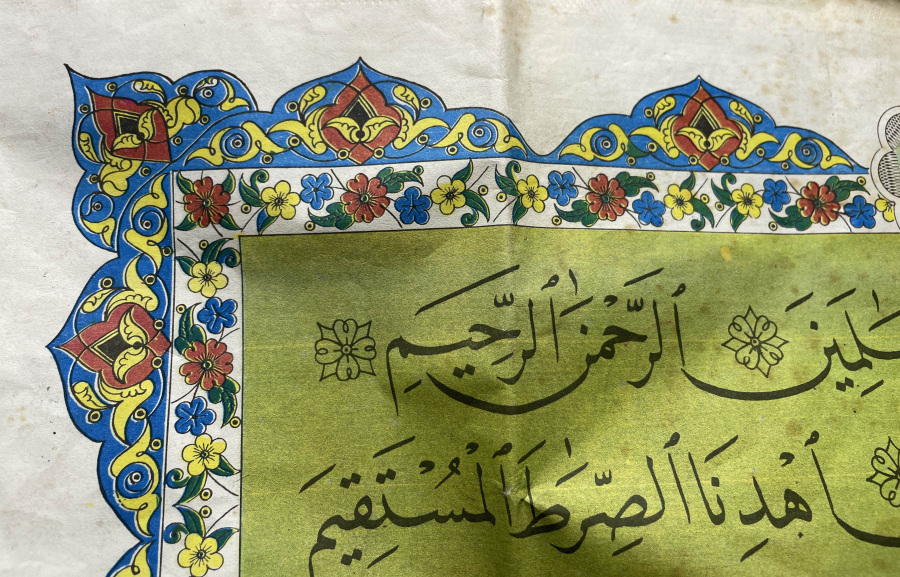 ـَٰلَمِينَ ٱلرَّحْمَٰنِ ٱلرَّحِيمِ
ٱهْدِنَا ٱلصِّرَٰطَ ٱلْمُسْتَقِيمَ